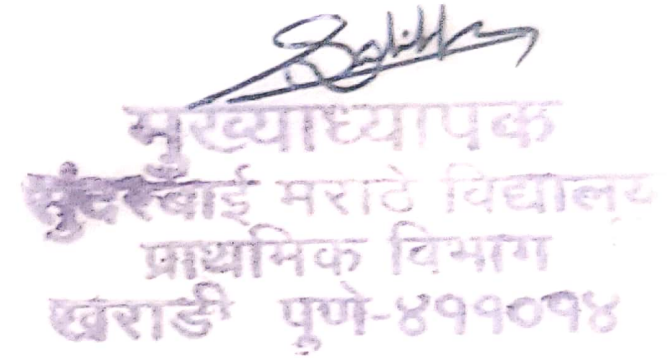 मुख्याध्यापक
सुंदरबाई मराठे विद्यालय
प्राथमिक विभाग
खराडी पुणे-४११०१४